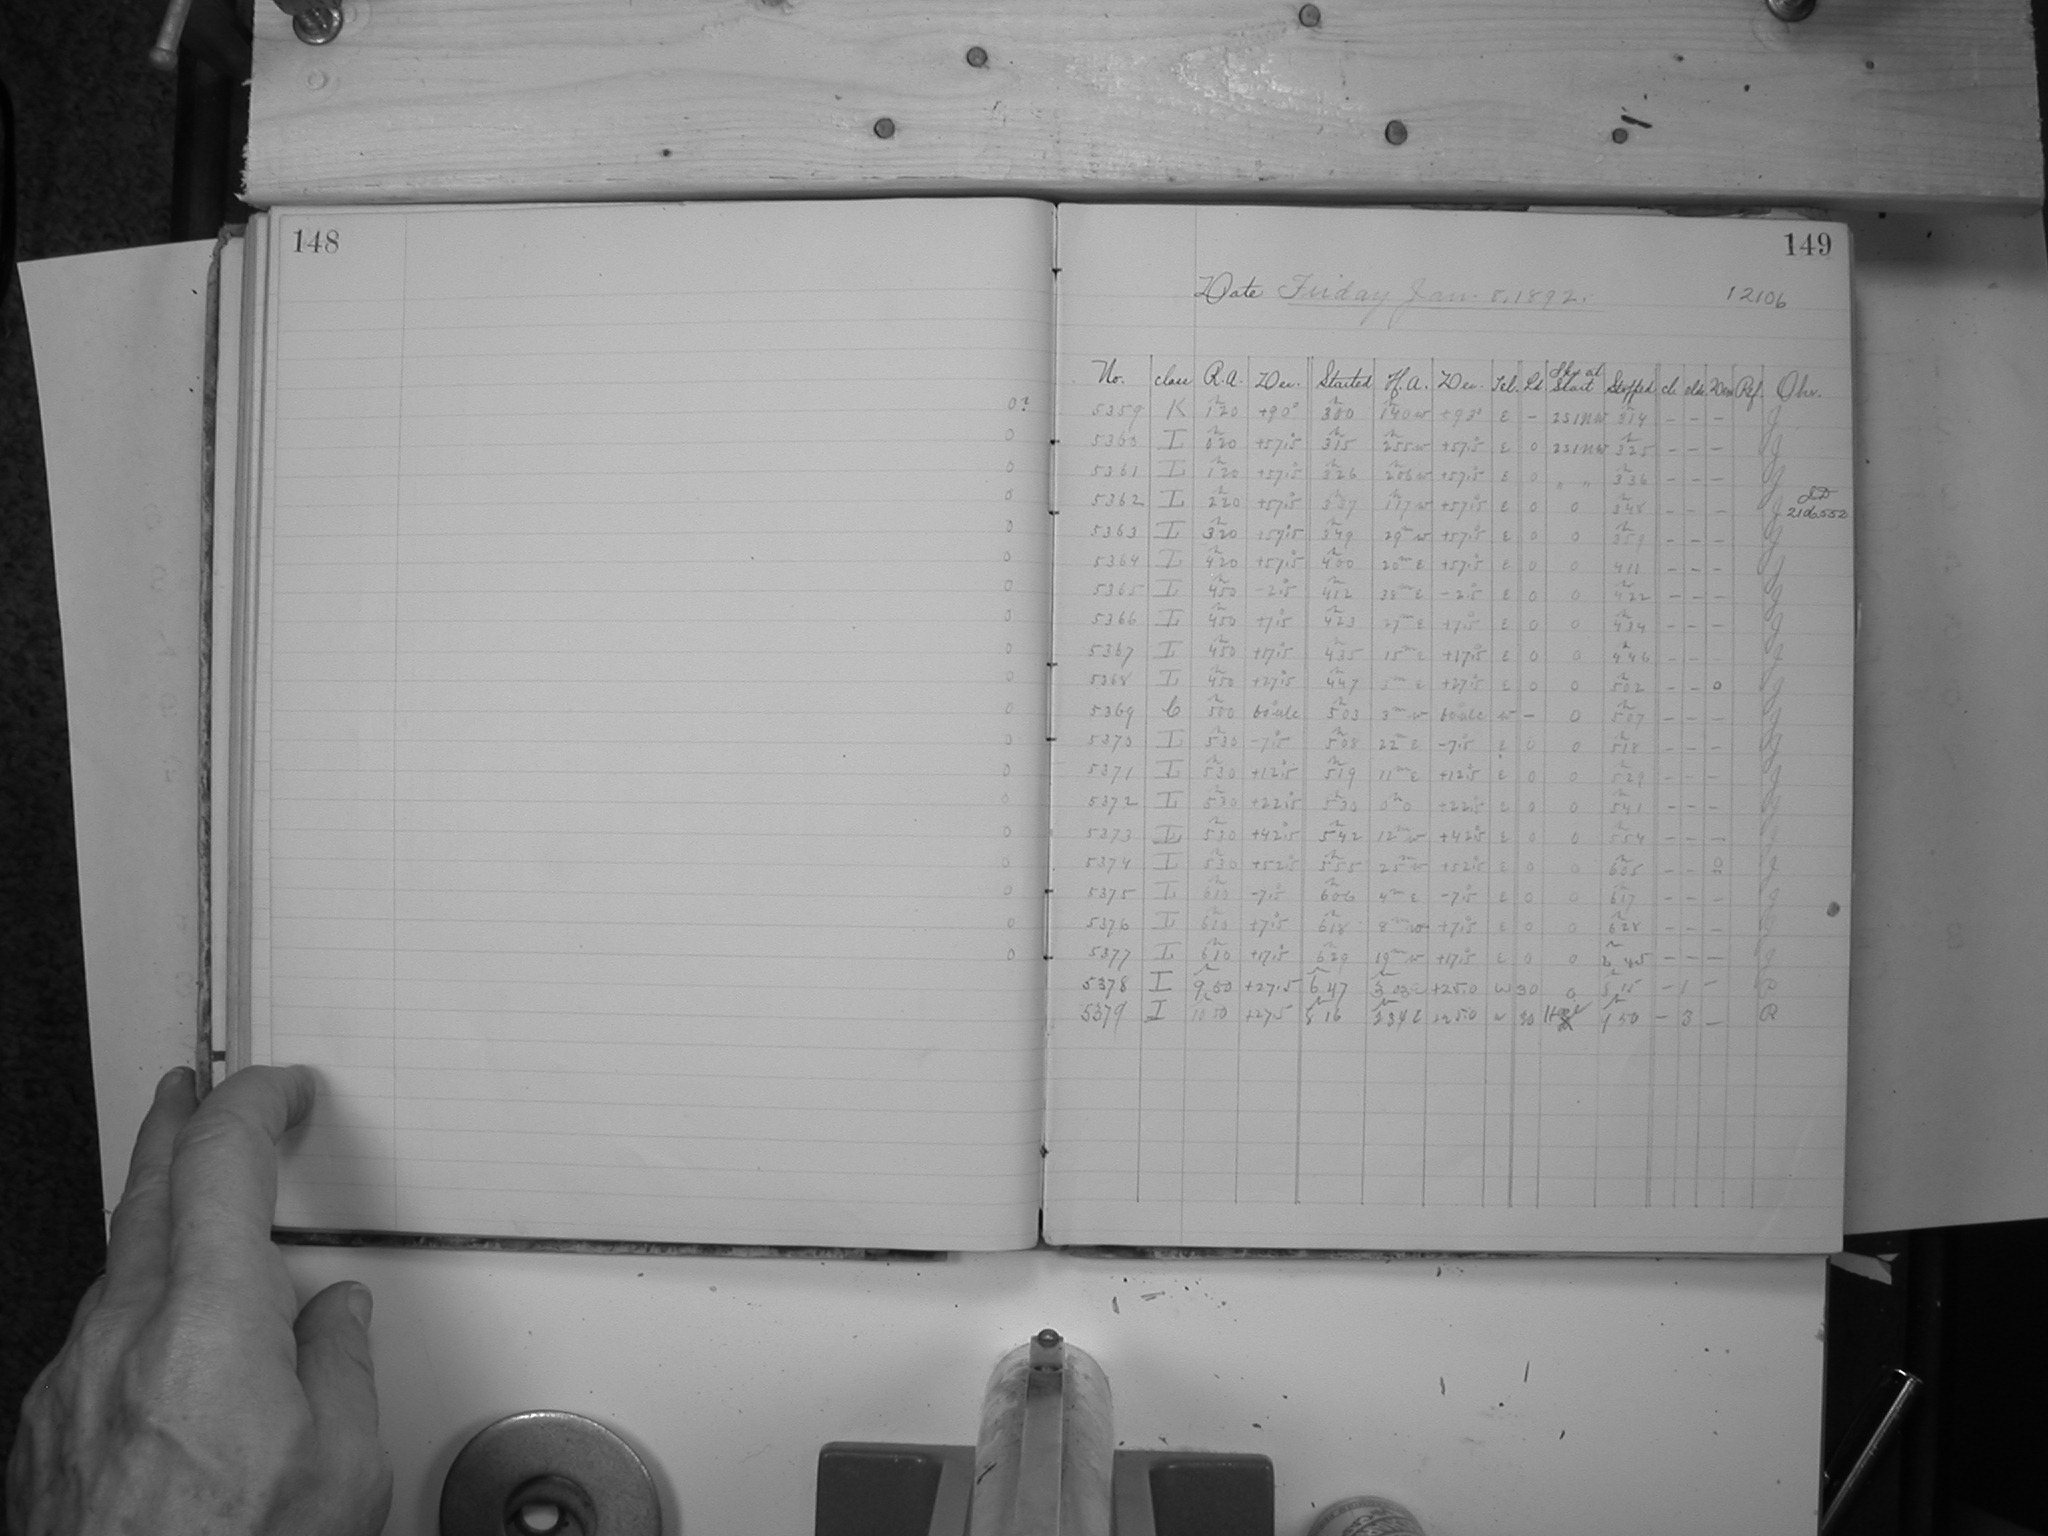 148
149
Date Friday Jan. 8, 1892.
12106
No. class R.A. Dec. Started H.A. Dec. Tel. Ld Sky at Start Stopped cl. Dew Ref. Obs.
0? 5359 K 1h20 +90° 300 1h40w +93° E - 314 - - - J
0 5360 I 020 +57.5 315 255w +57.5 E 0 325 - - - J
0 5361 I 120 +57.5 326 206w +57.5 E 0 " " 336 - - - J
0 5362 I 220 +57.5 337 117w +57.5 E 0 0 348 - - - J
JD
2106552
0 5363 I 320 +57.5 349 29m w +57.5 E 0 0 359 - - - J
0 5364 I 420 +57.5 400 20m E +57.5 E 0 0 411 - - - J
0 5365 I 450 -2.5 412 38m E -2.5 E 0 0 422 - - - J
0 5366 I 450 +7.5 423 27m E +7.5 E 0 0 434 - - - J
0 5367 I 450 +17.5 435 15m E +17.5 E 0 0 446 - - J
0 5368 I 450 +27.5 447 3m E +27.5 E 0 0 502 - - 0 J
0 5369 C 500 503 3m w w - 0 507 - - - J
0 5370 I 530 -7.5 508 22m E -7.5 E 0 0 518 - - - J
0 5371 I 530 +12.5 519 11m E +12.5 E 0 0 529 - - - J
0 5372 I 530 +22.5 530 0h0 +22.5 E 0 0 541 - - - J
0 5373 I 530 +42.5 542 12m w +42.5 E 0 0 554 - - - J
0 5374 I 530 +52.5 555 25m w +52.5 E 0 0 605 - - J
0 5375 I 610 -7.5 606 4m E -7.5 E 0 0 617 - - - J
0 5376 I 610 +7.5 618 8m w +7.5 E 0 0 628 - - - J
0 5377 I 610 +17.5 629 19m w +17.5 E 0 0 645 - - - J
5378 I 9 50 +27.5 6 47 3 03E +25.0 w 30 0 8 15 - 1 - R
5379 I 10 50 +27.5 8 16 2 34 E w 30 50 - 3 - R